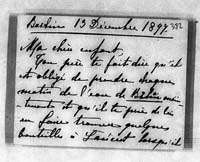 Berlin 13 Décembre 1897. 382
Ma chère enfant
Ton père te fait dire qu'il
est obligé de prendre chaque
matin de l'eau de
et qu'il te prie de lui
en faire trouver quelque
bouteille à lorsqu'il